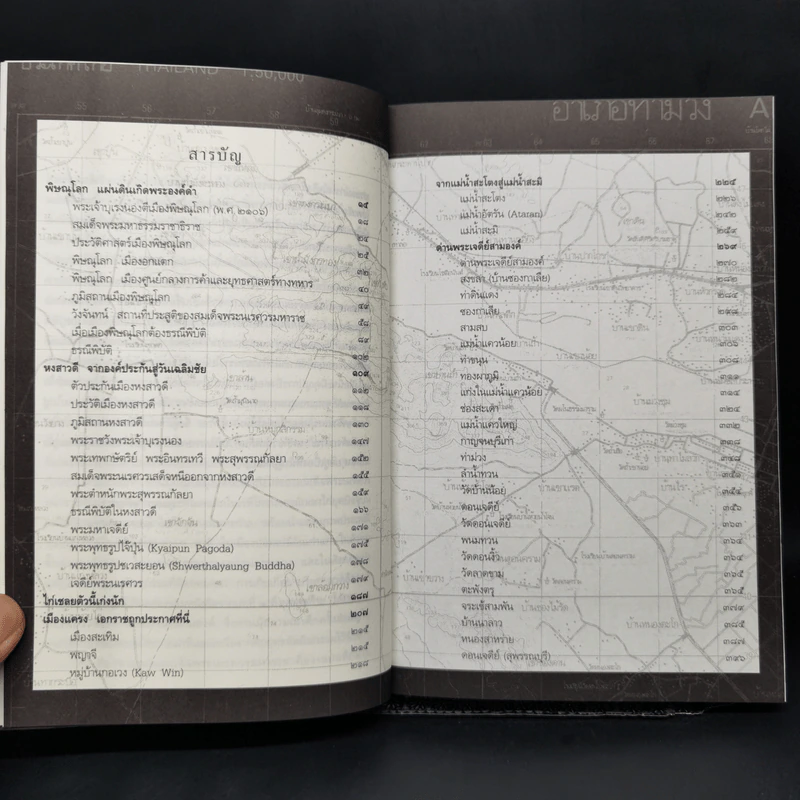 THAILAND 1:50,000
สารบัญ
พิษณุโลก แผ่นดินเกิดพระองค์ดำ ๑๕
พระเจ้าบุเรงนองตีเมืองพิษณุโลก (พ.ศ.๒๑๐๖) ๑๘
สมเด็จพระมหาธรรมราชาธิราช ๒๔
ประวัติศาสตร์เมืองพิษณุโลก ๒๕
พิษณุโลก เมืองอกแตก ๓๒
พิษณุโลก เมืองศูนย์กลางการค้าและยุทธศาสตร์ทางทหาร ๔๐
ภูมิสถานเมืองพิษณุโลก ๔๙
วังจันทน์ สถานที่ประสูติของสมเด็จพระนเรศวรมหาราช ๕๘
เมื่อเมืองพิษณุโลกต้องธรณีพิบัติ ๘๙
ธรณีพิบัติ ๑๐๒
หงสาวดี จากองค์ประกันสู่วันเฉลิมชัย ๑๐๙
ตัวประกันเมืองหงสาวดี ๑๑๒
ประวัติเมืองหงสาวดี ๑๑๘
ภูมิสถานเมืองหงสาวดี ๑๓๐
พระราชวังพระเจ้าบุเรงนอง ๑๔๗
พระเทพกษัตรีย์ พระอินทรเทวี พระสุพรรณกัลยา ๑๕๒
สมเด็จพระนเรศวรเสด็จหนีออกจากหงสาวดี ๑๕๕
พระตำหนักพระสุพรรณกัลยา ๑๕๙
ธรณีพิบัติในหงสาวดี ๑๖๖
พระมหาเจดีย์ ๑๗๑
พระพุทธรูปไจ๊ปุ่น (Kyaipun Pagoda) ๑๗๕
พระพุทธรูปชเวสะยอน (Shwerthalyaung Buddha) ๑๗๖
เจดีย์พระนเรศวร ๑๗๙
ไก่เชลยตัวนี้เก่งนัก ๑๘๗
เมืองแครง เอกราชถูกประกาศที่นี่ ๒๐๗
เมืองสะเทิม ๒๑๕
พญาจี ๒๑๕
หมู่บ้านกอเวง (Kaw Win) ๒๑๘
อำเภอท่าม่วง
จากแม่น้ำสะโตงสู่แม่น้ำสะมิ ๒๒๕
แม่น้ำสะโตง ๒๒๖
แม่น้ำอัตรัน (Atxran) ๒๔๒
แม่น้ำสะมิ ๒๕๙
ด่านพระเจดีย์สามองค์ ๒๖๙
ด่านพระเจดีย์สามองค์ ๒๗๐
สงขลา (บ้านซองกาเลีย) ๒๘๒
ท่าดินแดง ๒๘๔
ซองกาเลีย ๒๙๘
สามสบ ๓๐๓
แม่น้ำแควน้อย ๓๐๖
ท่าขนุน ๓๐๘
ทองผาภูมิ ๓๑๑
แก่งในแม่น้ำแควน้อย ๓๑๔
ช่องสะเดา ๓๒๔
แม่น้ำแควใหญ่ ๓๓๒
กาญจนบุรีเก่า ๓๓๘
ท่าม่วง ๓๔๘
ลำน้ำทวน ๓๕๑
วัดบ้านน้อย ๓๕๔
ดอนเจดีย์ ๓๕๖
วัดดอนเจดีย์ ๓๖๓
พนมทวน ๓๖๔
วัดดอนงิ้ว ๓๖๔
วัดลาดขาม ๓๖๕
ตะพังตรุ ๓๖๕
จระเข้สามพัน ๓๗๙
บ้านนาลาว ๓๘๕
หนองสาหร่าย ๓๘๗
ดอนเจดีย์ (สุพรรณบุรี) ๓๙๖